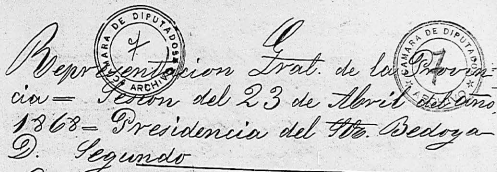 CAMARA DE DIPUTADOS
7
ARCHIVO
CAMARA DE DIPUTADOS
7
Representacion Gral. de la Provin-
cia = Sesion del 23 de Abril del año
1868 = Presidencia del Sr. Bedoya
D. Segundo